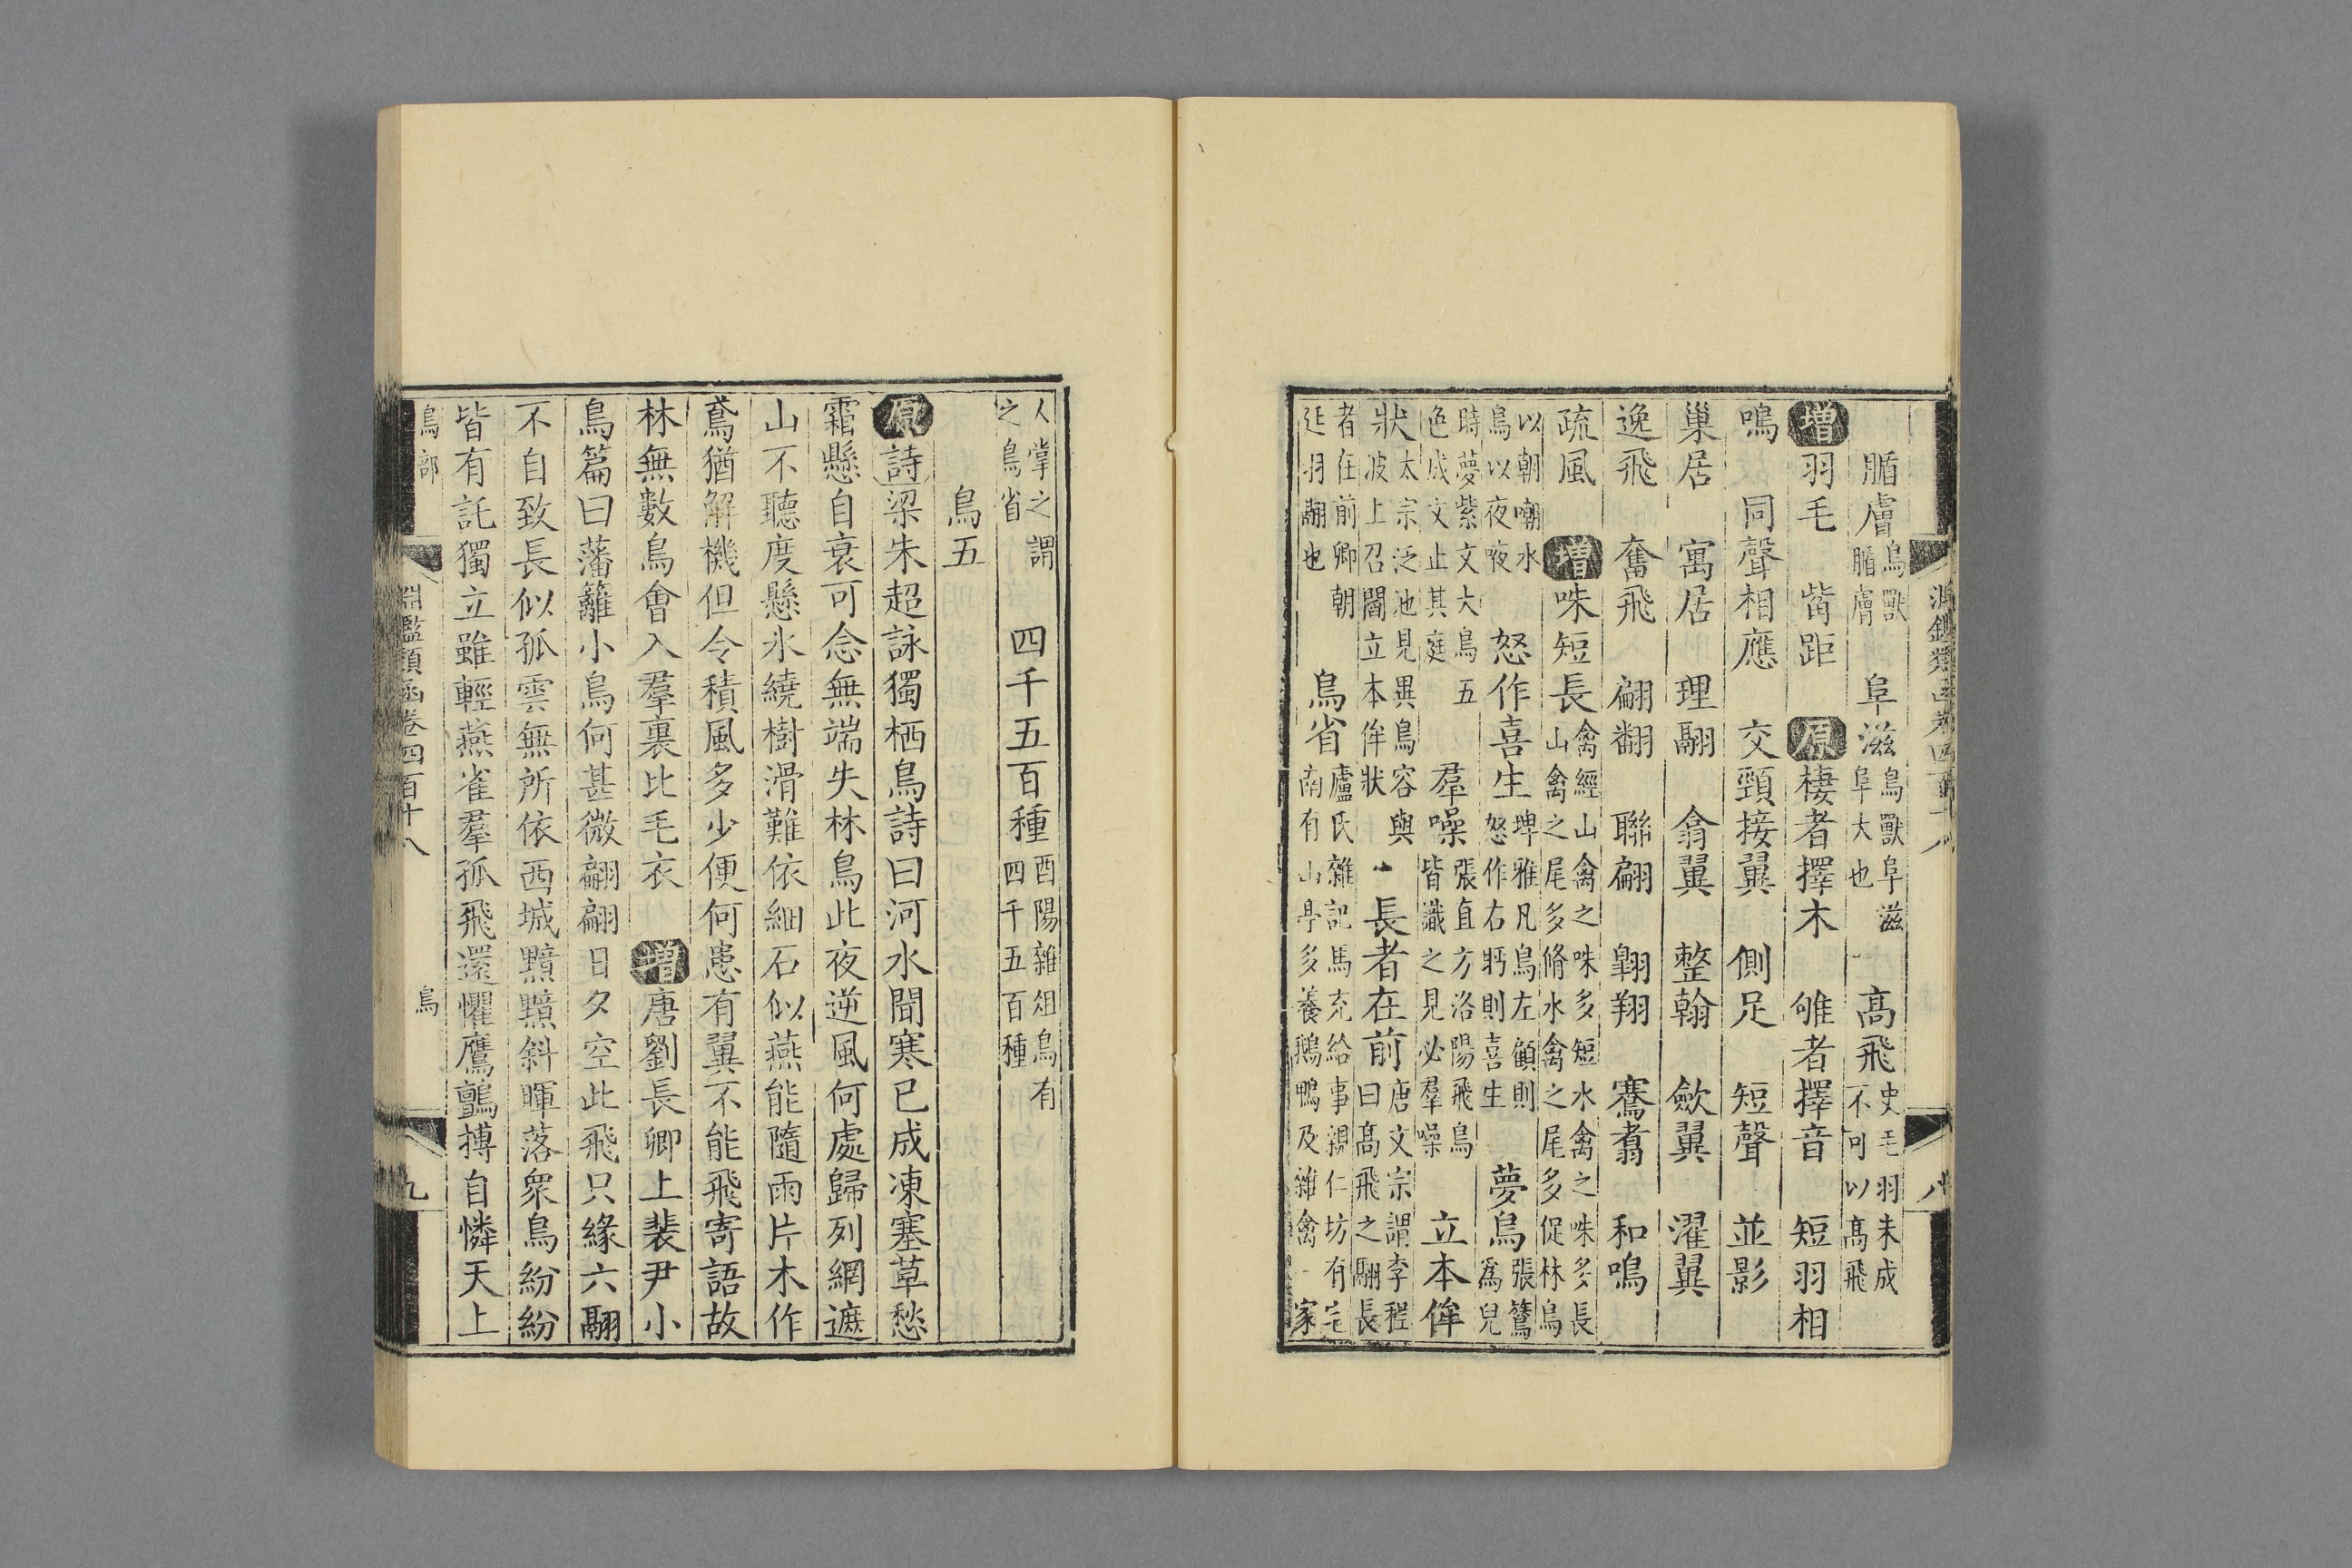 淵鑑類函卷四百十八 八
腯膚 鳥獸腯膚 阜滋 鳥獸阜滋阜大也 高飛 史毛羽未成不可以高飛
增 羽毛 觜距 原 棲者擇木 雊者擇音 短羽相
鳴 同聲相應 交頸接翼 側足 短聲 並影
巢居 寓居 理翮 翕翼 整翰 歛翼 濯翼
逸飛 奮飛 翩翻 聯翩 翱翔 騫翥 和鳴
疏風 增 咮短長 禽經山禽之咮多短水禽之咮多長山禽之尾多脩水禽之尾多促林鳥
以朝嘲水鳥以夜㖡 怒作喜生 埤雅凡鳥左顧則怒作右眄則喜生 夢鳥 張鷟爲兒
時夢紫文大鳥五色成文止其庭 羣噪 張直方洛陽飛鳥皆識之見必羣噪 立本侔
狀 太宗泛池見異鳥容與波上召閻立本侔狀 長者在前 唐文宗謂李程曰高飛之翮長
者在前卿朝廷羽翮也 鳥省 盧氏雜記馬充給事親仁坊有宅南有山亭多養鵝鴨及雜禽一家
人掌之謂之鳥省 四千五百種 酉陽雜俎鳥有四千五百種
鳥五
原 詩 梁朱超詠獨栖鳥詩曰河水聞寒已成凍塞草愁
霜懸自衰可念無端失林鳥此夜逆風何處歸列網遮
山不聽度懸氷繞樹滑難依細石似燕能隨雨片木作
鳶猶解機但令積風多少便何患有翼不能飛寄語故
林無數鳥會入羣裏比毛衣 增 唐劉長卿上裴尹小
鳥篇曰藩籬小鳥何甚微翩翩日夕空此飛只緣六翮
不自致長似孤雲無所依西城黯黯斜暉落衆鳥紛紛
皆有託獨立雖輕燕雀羣孤飛還懼鷹鸇搏自憐天上
鳥部 淵鑑類函卷四百十八 鳥 九